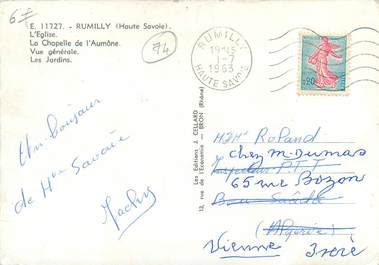 6F
E. 11727. - RUMILLY (Haute Savoie).
L'Eglise.
La Chapelle de l'Aumône.
Vue générale.
Les Jardins.
74
RUMILLY
19H15
1-7
1963
HAUTE SAVOIE
0,20
Les Editions J. CELLARD
13, rue de l'Economie — BRON (Rhône)
Un bonjour
de Hte Savoie
Roland
chez M. Dumas
P.T.T
65 rue Bozon
(Algérie)
Vienne Isère